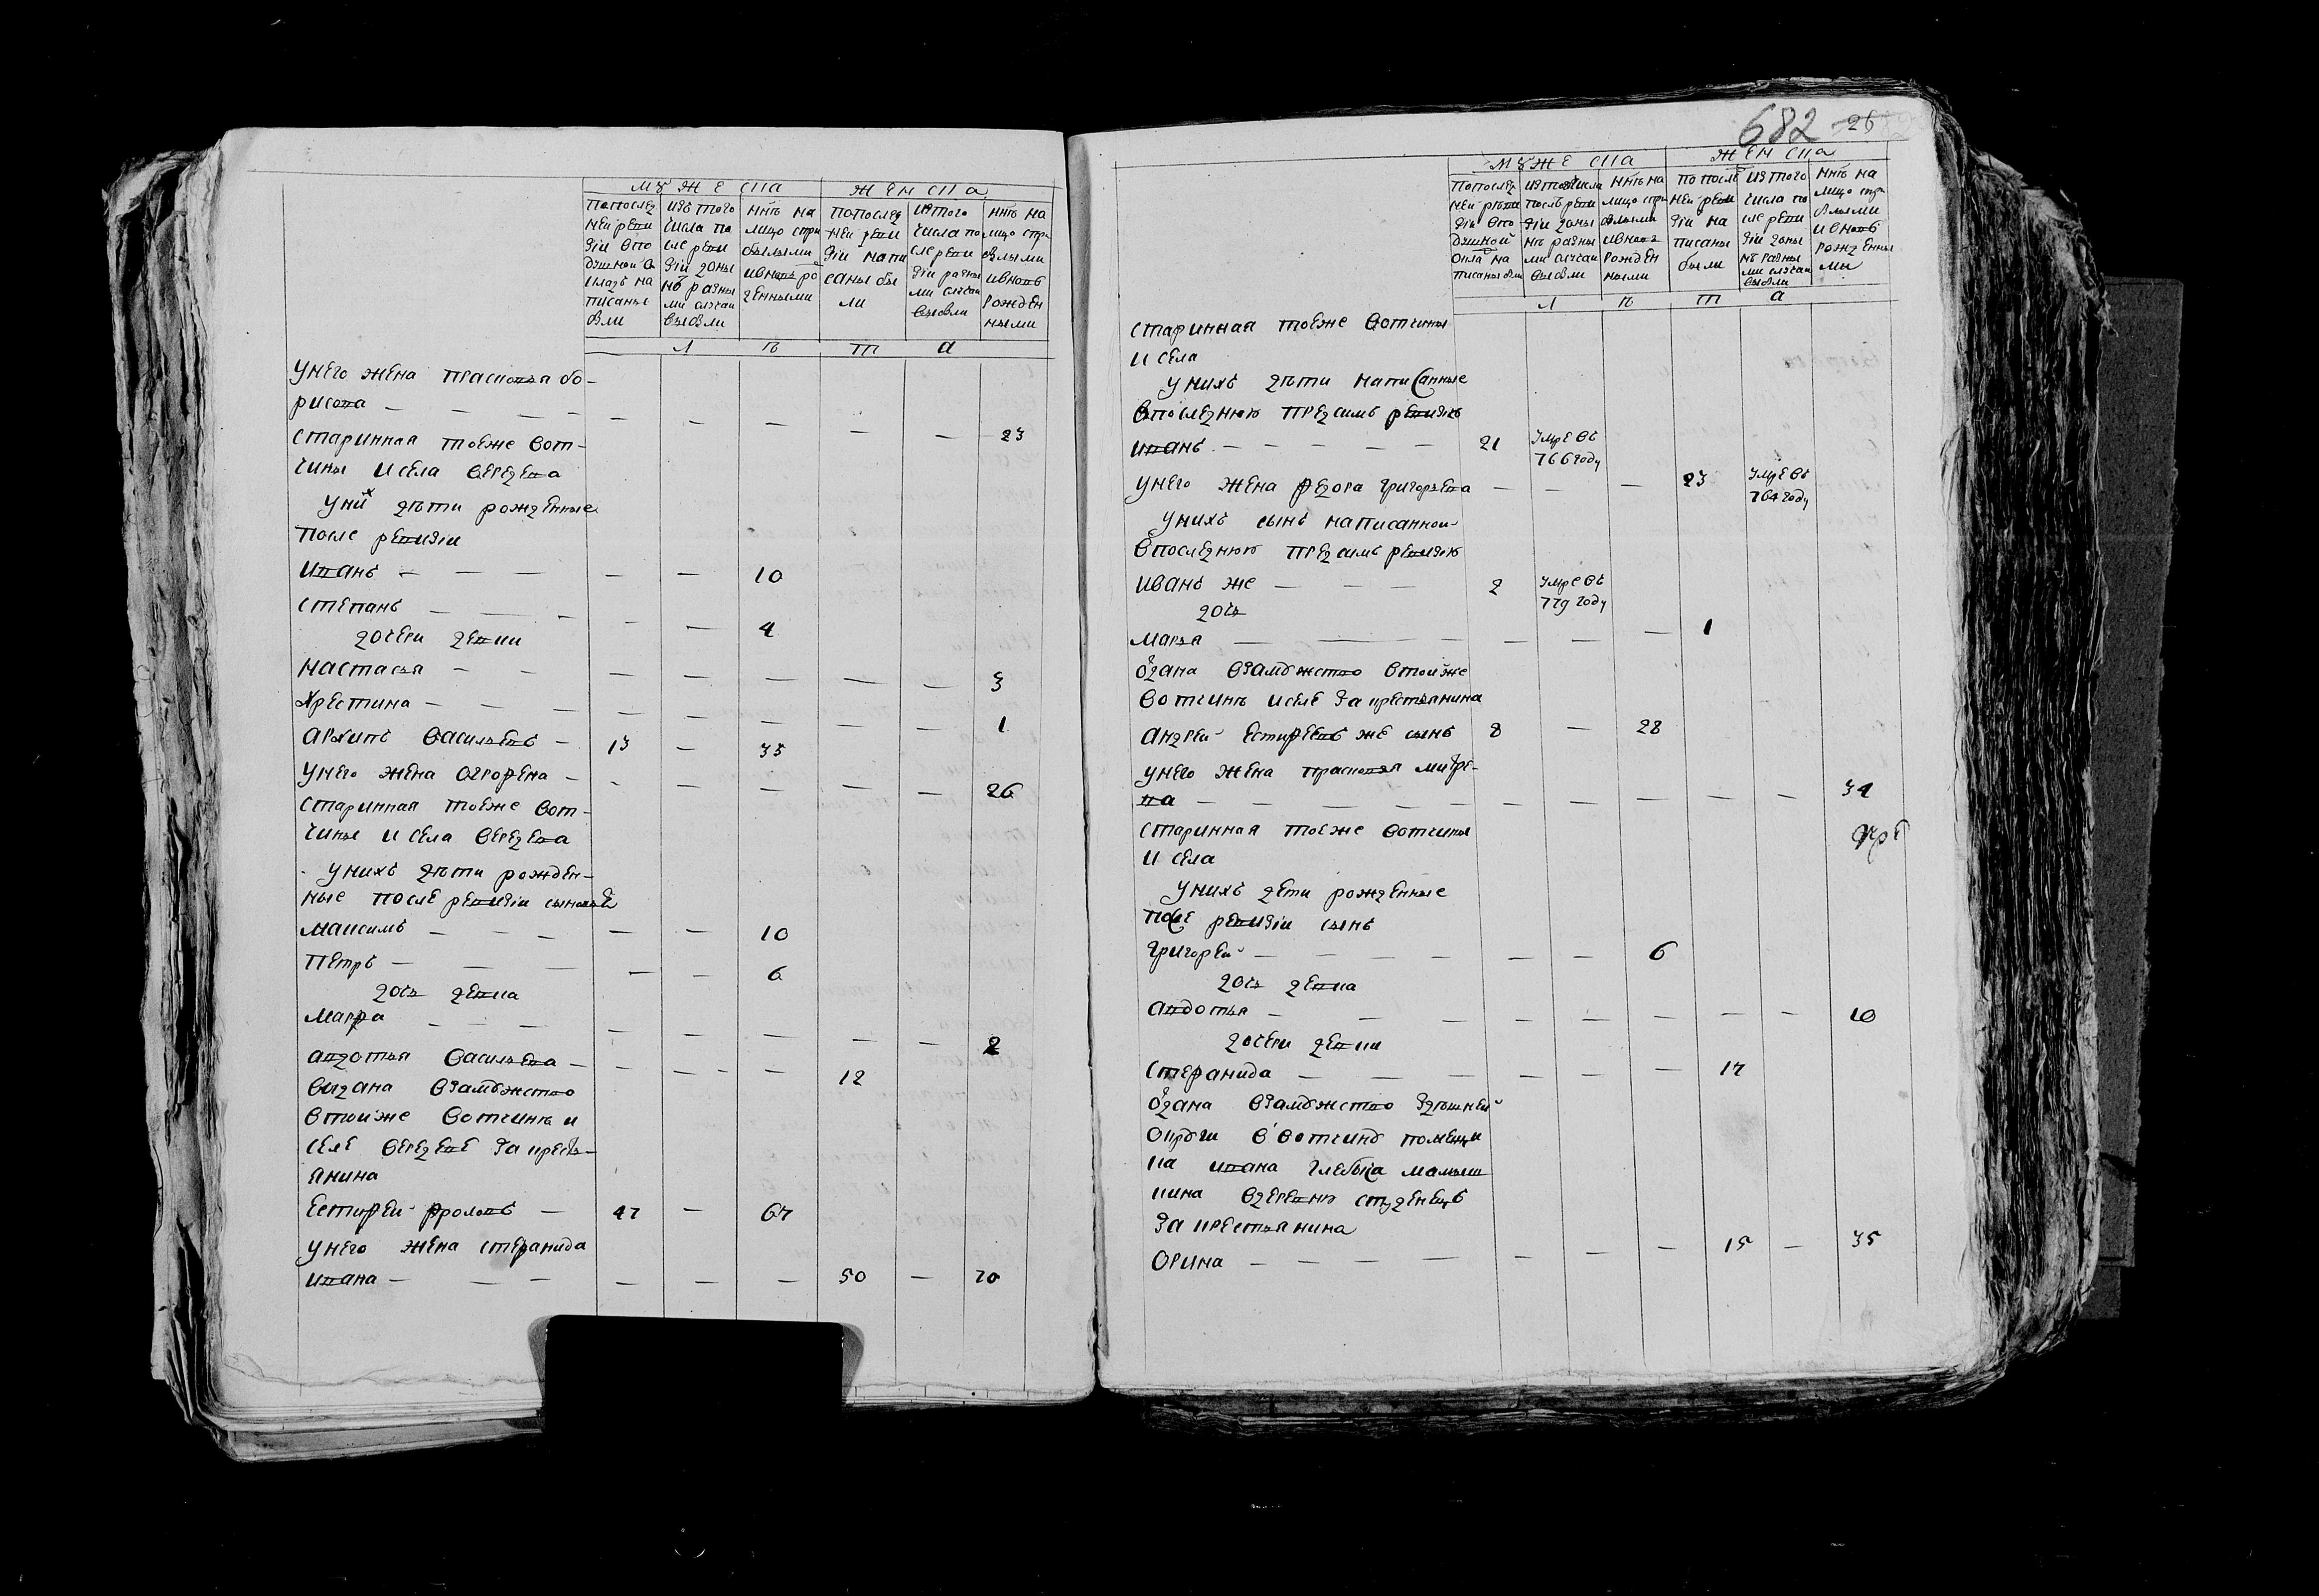 мȣжеска
женска
попослед
ней реви
зіи впо
душной о
кладъ на
писаны
были
изъ того
числа по
сле реви
зіи доны
нѣ разны
ми случаи
выбыли
ннѣ на
лицо спри
былыми
ивновь ро
жденными
попослед
ней реви
зіи напи
саны бы
ли
изтого
числа по
сле реви
зіи разны
ми случаи
выбыли
ннѣ на
лицо спри
былыми
ивновь
рожден
ными
лѣта
унего жена прасковья бо-
рисова — — — — — — — — — 23
старинная тоеже вот-
чины исела верезева
уних дѣти рожденные
после ревизіи
иванъ — — — — — 10
степанъ — — — — — 4
дочери девки
настасья — — — — — — — 3
христина — — — — — — — — 1
архипъ васильевъ — 13 — 35
унего жена огрофена — — — — — — 26
старинная тоеже вот-
чины исела верезева
унихъ дѣти рожден-
ные после ревизіи сыновей
максимъ — — — — — 10
петръ — — — — — 6
дочь девка
марфа — — — — — — — — 2
авдотья васильева — — — — 12
выдана взамужство
втойже вотчинѣ и
селе верезеве за кресть-
янина
естифей фроловъ — 47 — 67
унего жена стефанида
ивана — — — — — — 50 — 70
682
26
мȣжеска
женска
попослед
ней ревы
зіи впо
душной
окла на
писаны были
изтого числа
послѣ реви
зіи доны
нѣ разны
ми случаи
выбыли
ннѣ на
лицо спри
былыми
ивнов
рожден
ными
по после
ней реви
зіи на
писаны
были
изтого
числа по
сле реви
зіи доны
нѣ разны
ми случаи
выбыли
ннѣ на
лицо спри
былыми
ивновь
рожденны
ми
лѣта
старинная тоеже вотчины
исела
унихъ дѣти написанные
впоследнюю предсимъ ревизію
иванъ — — — — — 21 умре въ
766 году
унего жена федора григорьева — — — 23 умре въ
764 году
унихъ сынъ написанной
впоследнюю предсимъ ревизію
иванъ же — — — 2 умре въ
779 году
дочь
марья — — — — — — 1
одана взамужство втойже
вотчинѣ иселе за крестьянина
андрей естифеевъ же сынъ 8 — 28
унего жена прасковья митре-
ва — — — — — — — — — — 34
старинная тоеже вотчины
исела
унихъ дети рожденные
после ревизіи сынъ
григорей — — — — — — 6
дочь девка
авдотья — — — — — — — — — 10
дочери девки
стефанида — — — — — — 17
одана взамужство здѣшней
округи ввотчину помещи
ка ивана глебыча
взеревню студенецъ
за крестьянина
орина — — — — — — — 15 — 35